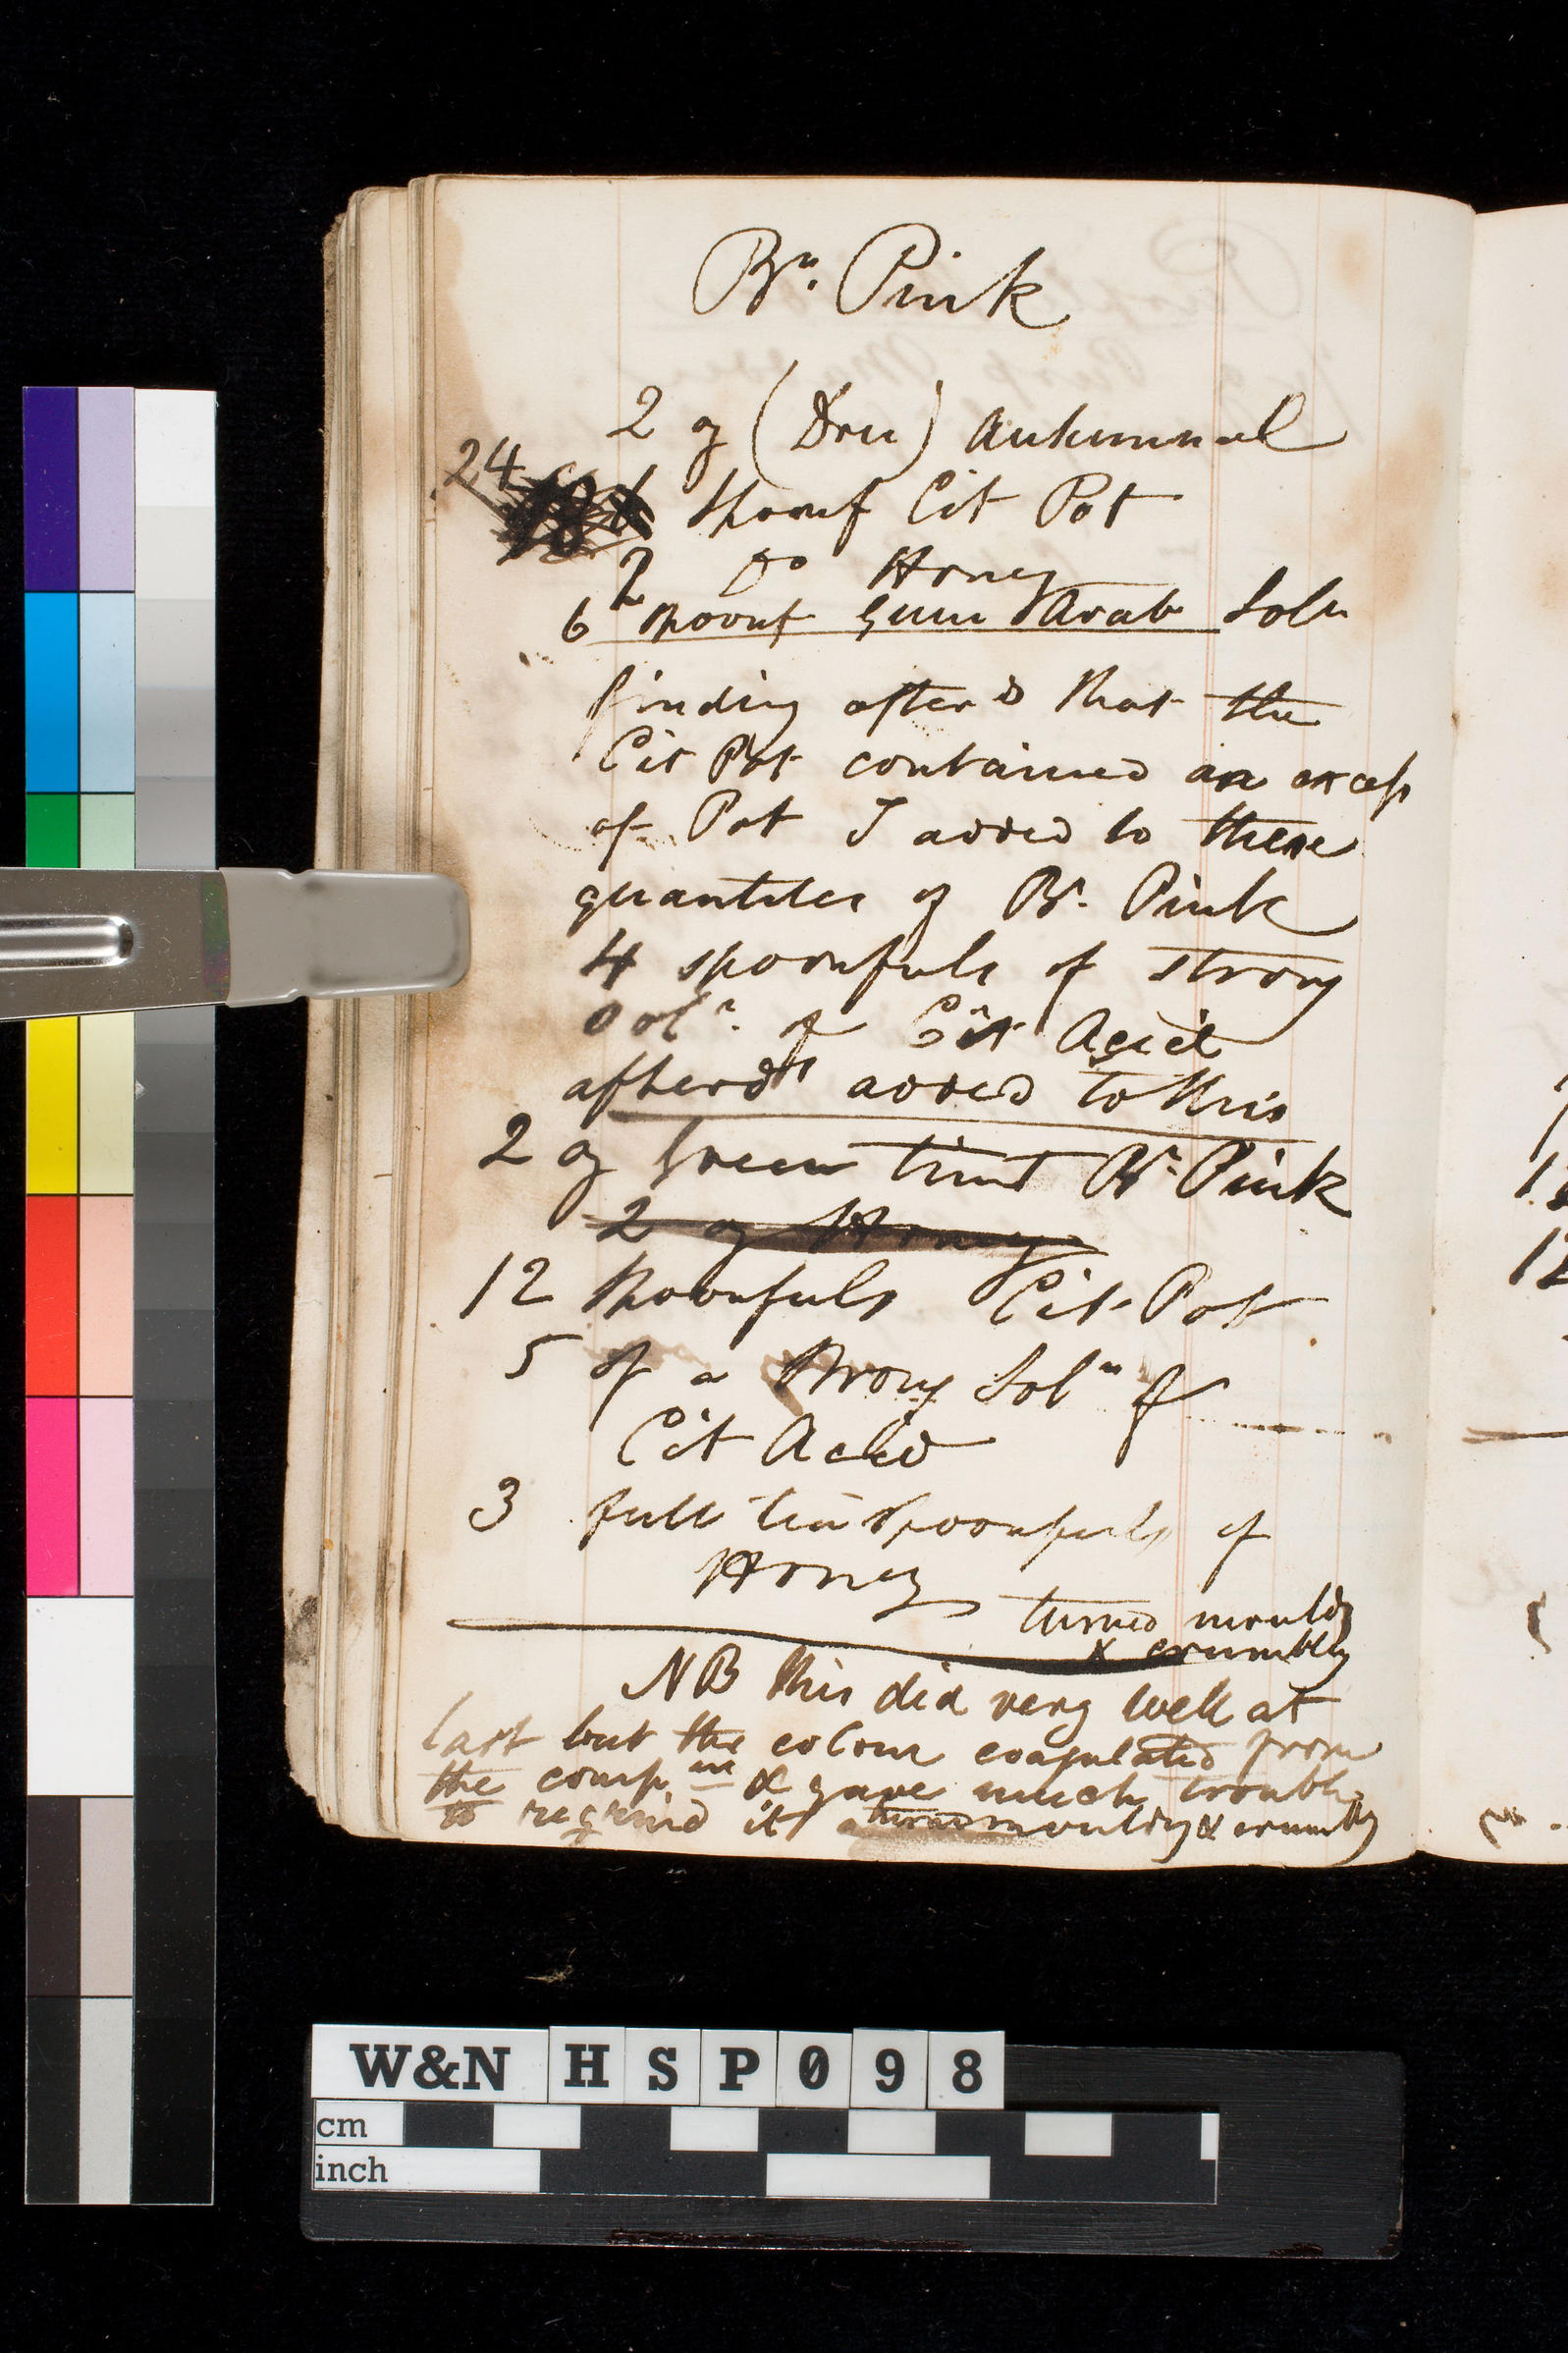 Bn. Pink
2 oz (Dru) Autumnal
24
Spoonf Cit Pot
2 Do Honey
6 Spoonf Gum Arab Soln
finding afterds that the
Cit Pot contained an excess
of Pot I added to these
quantites of Bn. Pink
4 spoonfuls of strong
Soln. of Cit Acid
afterds added to this
2 oz Green tint Bn Pink
2 oz Honey
12 Spoonfuls Cit Pot
5 of a Strong Soln of
Cit Acid
3 full tea Spoonfuls of
Honey
turned mouldy
& crumbly
NB this did very well at
last but the colour coagulated from
the comp & gave much trouble
to regrind it turned mouldy & crumbly
W&N HSP098
cm
inch